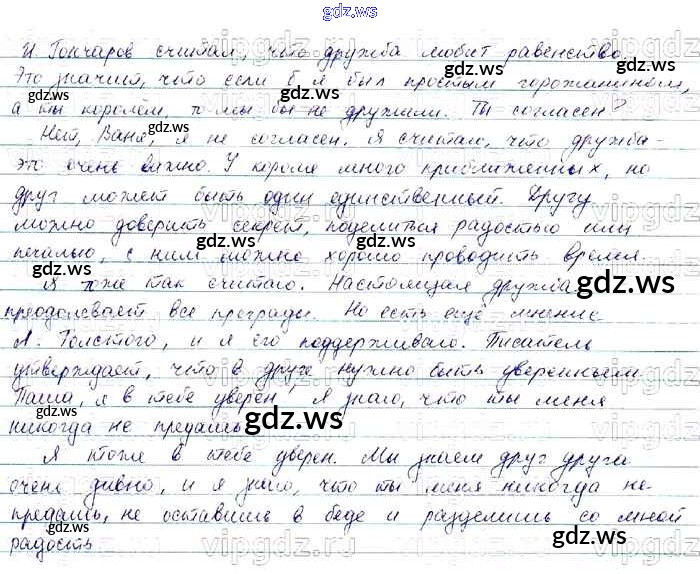 gdz.ws
И. Гончаров считал, что дружба любит равенство.
Это значит, что если б я был простым горожанином,
а ты королём, то мы бы не дружили. Ты согласен?
Нет, Ваня, я не согласен. Я считаю, что дружба -
это очень важно. У короля много приближенных, но
друг может быть один единственный. Другу
можно доверить секрет, поделиться радостью или
печалью, с ним можно хорошо проводить время.
Я тоже так считаю. Настоящая дружба
преодолевает все преграды. Но есть ещё мнение
Л. Толстого, и я его поддерживаю. Писатель
утверждает, что в друге нужно быть уверенным.
Паша, я в тебе уверен, я знаю, что ты меня
никогда не предашь.
Я тоже в тебе уверен. Мы знаем друг друга
очень давно, и я знаю, что ты меня никогда не-
предашь, не оставишь в беде и разделишь со мной
радость.